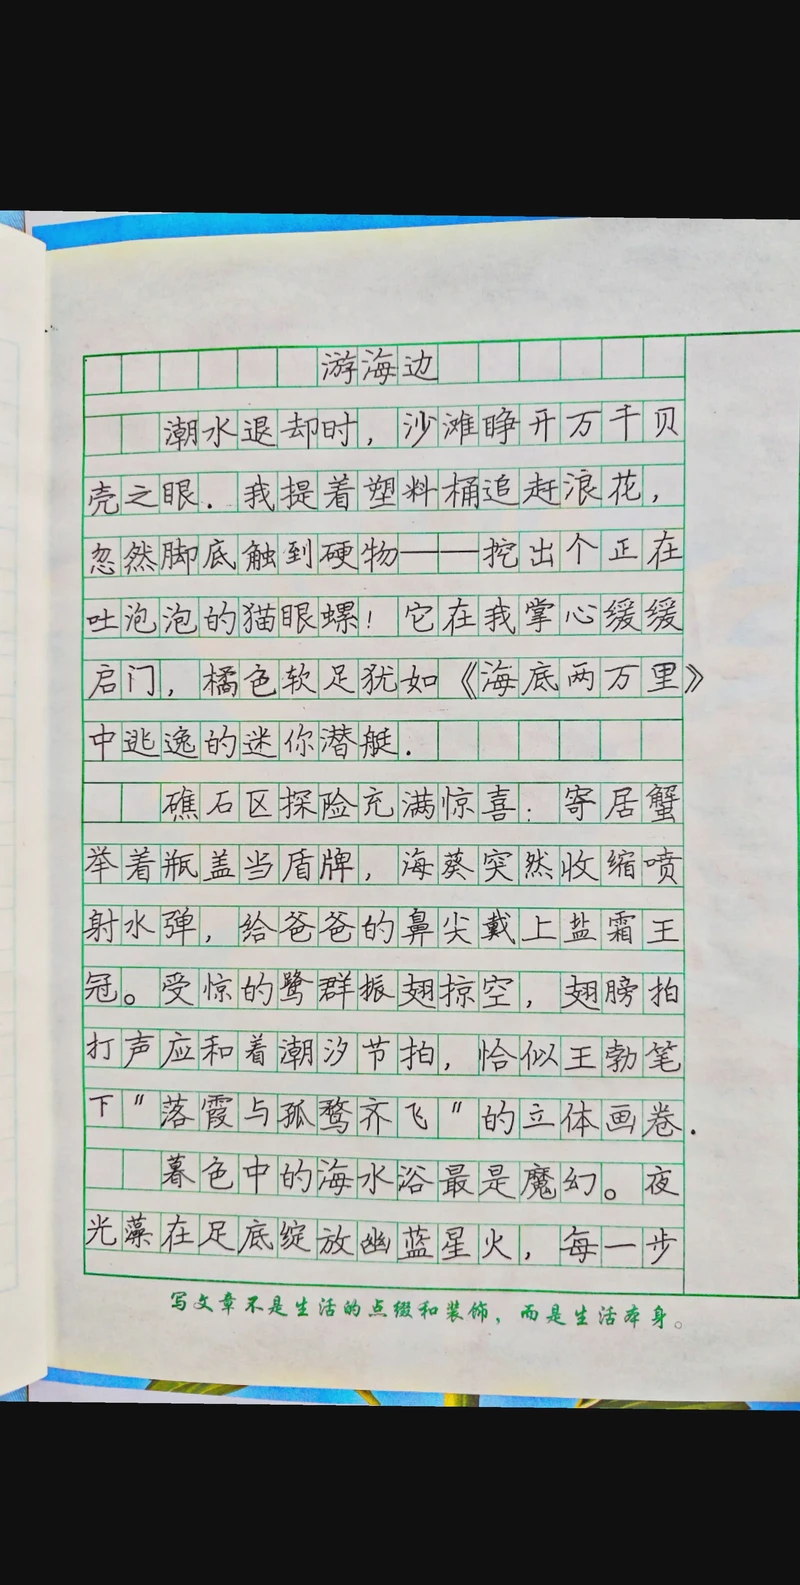 游海边
潮水退却时，沙滩睁开万千贝
壳之眼．我提着塑料桶追赶浪花，
忽然脚底触到硬物——挖出个正在
吐泡泡的猫眼螺！它在我掌心缓缓
启门，橘色软足犹如《海底两万里》
中逃逸的迷你潜艇．
礁石区探险充满惊喜：寄居蟹
举着瓶盖当盾牌，海葵突然收缩喷
射水弹，给爸爸的鼻尖戴上盐霜王
冠。受惊的鹭群振翅掠空，翅膀拍
打声应和着潮汐节拍，恰似王勃笔
下"落霞与孤鹜齐飞"的立体画卷．
暮色中的海水浴最是魔幻。夜
光藻在足底绽放幽蓝星火，每一步
写文章不是生活的点缀和装饰，而是生活本身。